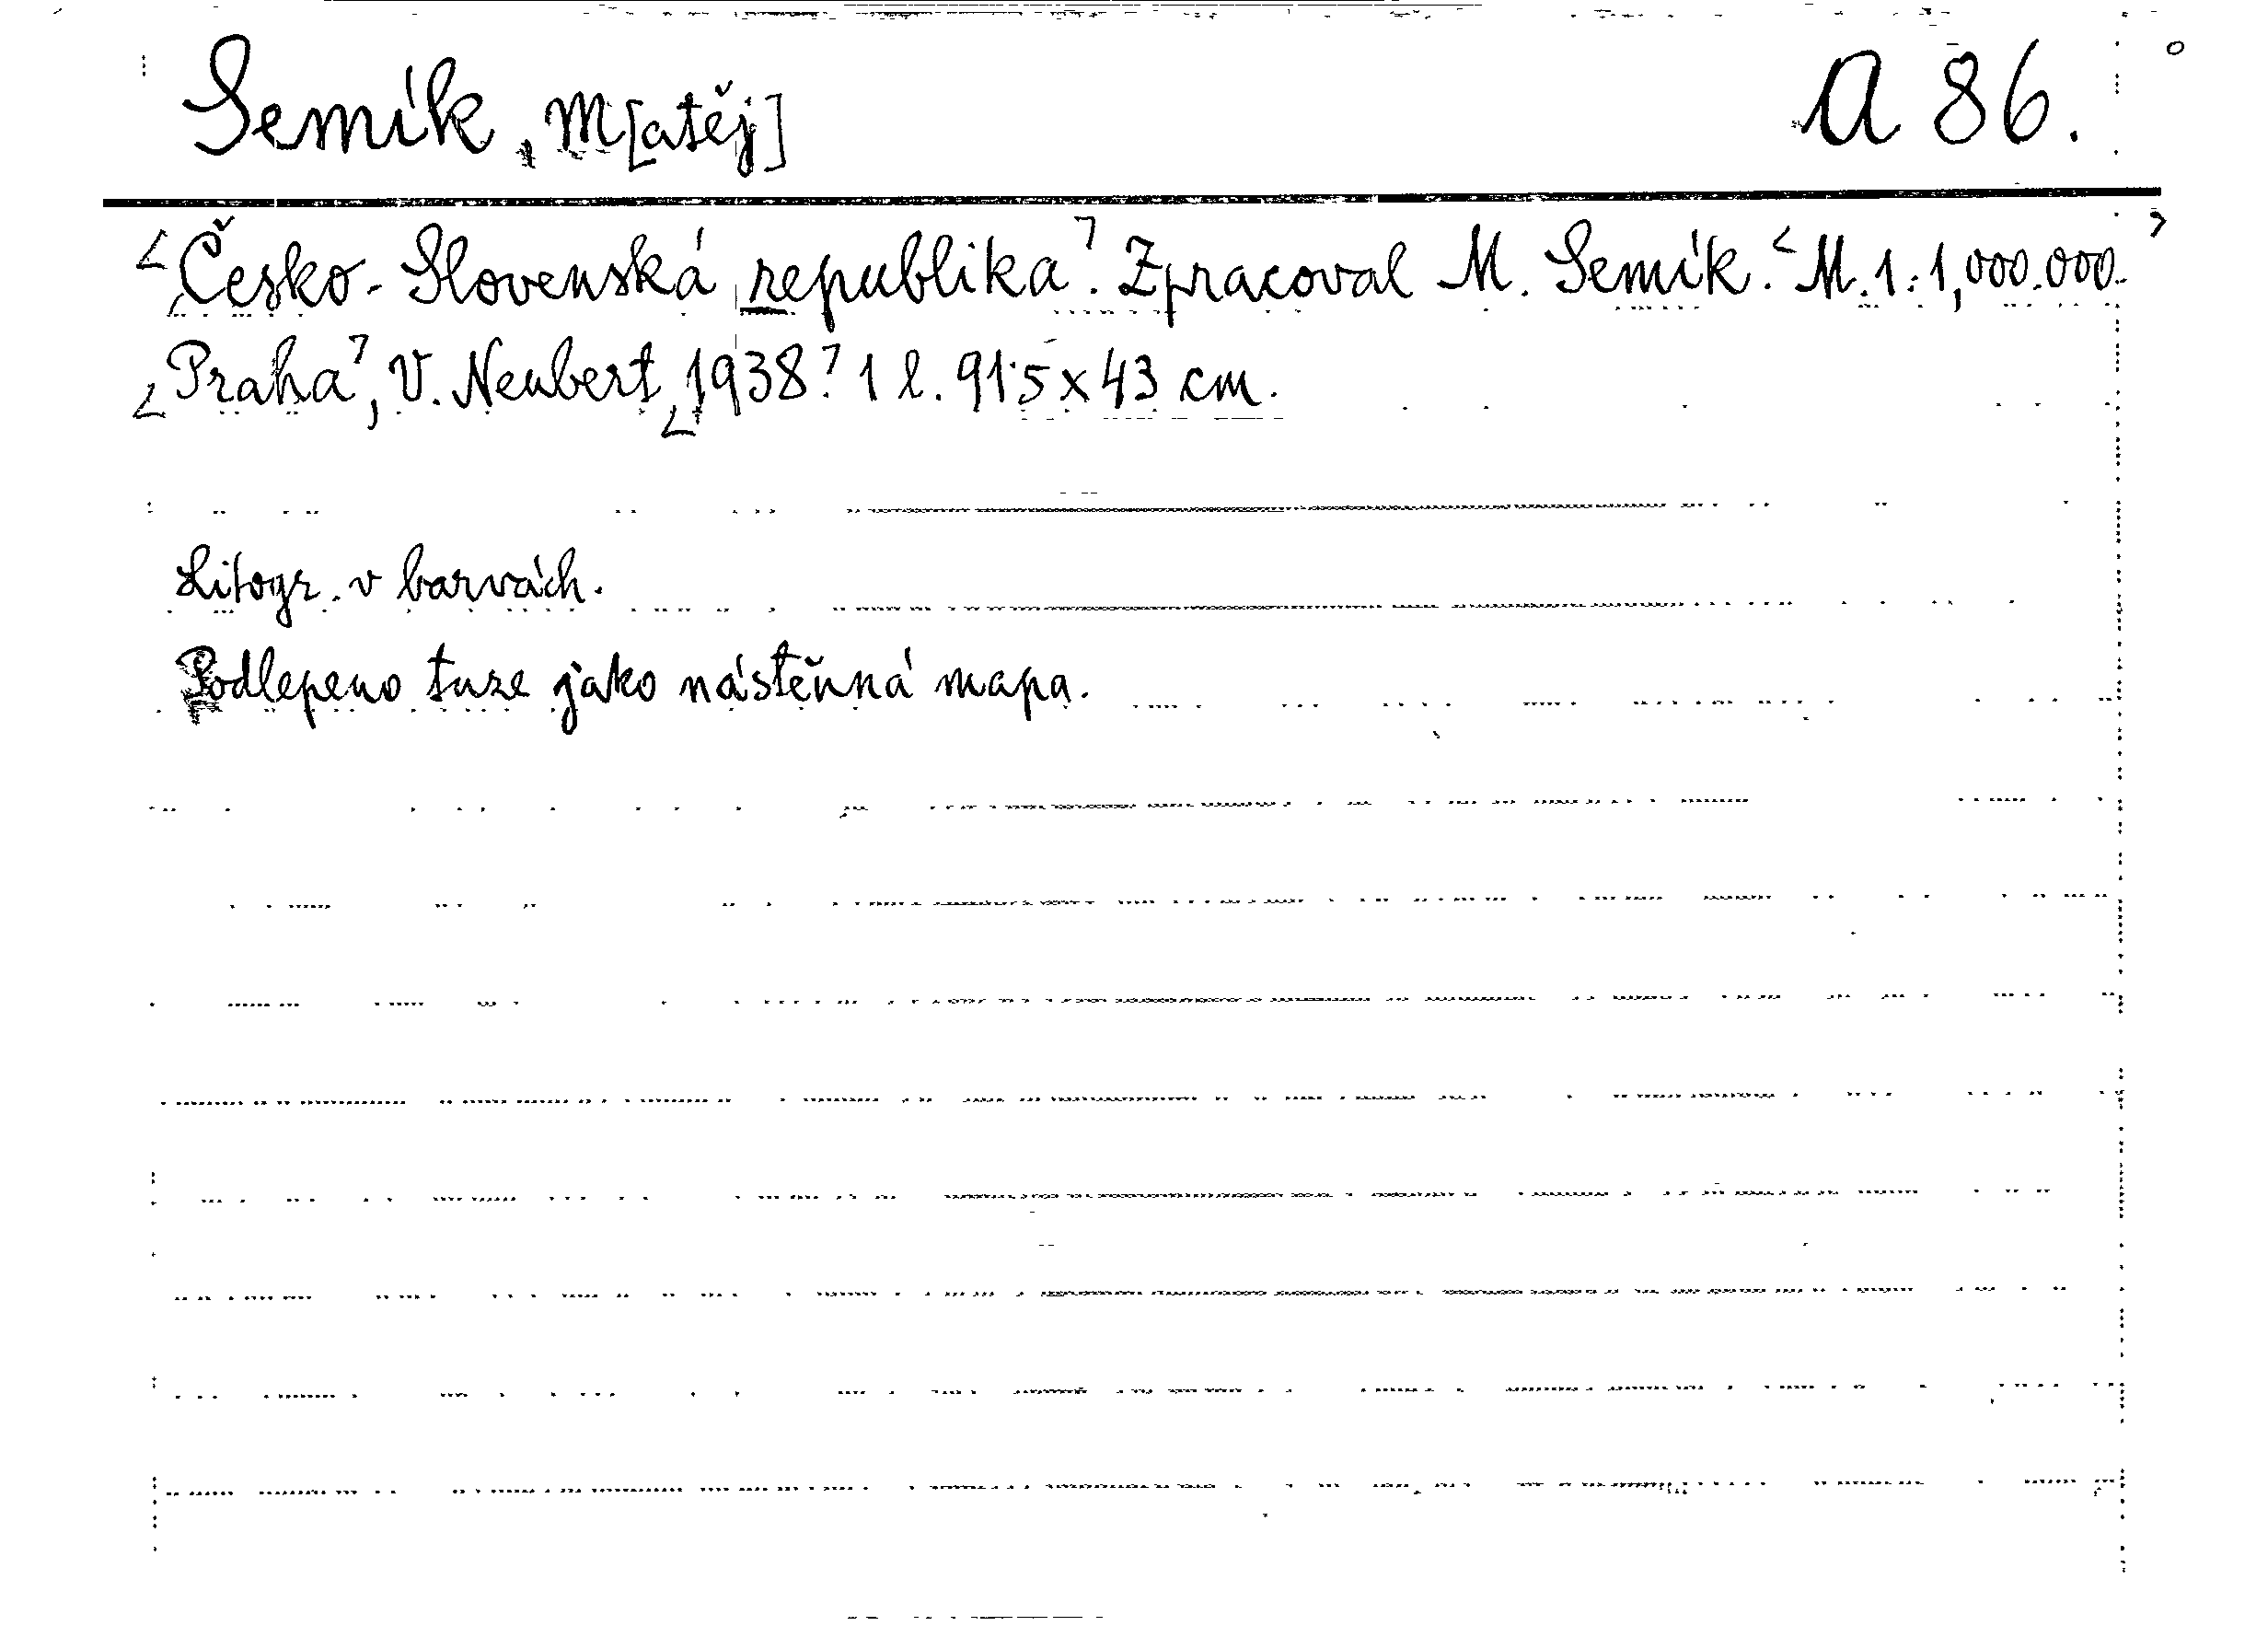 Semík, M[atěj] A 86.
<Česko-Slovenská republika>. Zpracoval M. Semík. <M. 1:1,000.000.>
<Praha>, V. Neubert <1938>. 1 l. 91·5 x 43 cm.
Litogr. v barvách.
Podlepeno tuze jako nástěnná mapa.